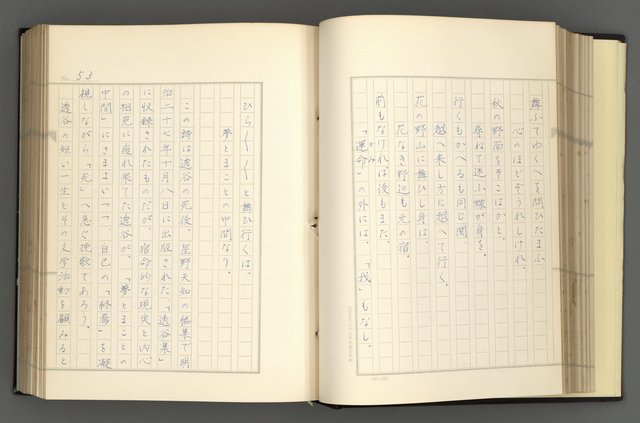 舞ふてゆくへを問ひたまふ
心のほどぞうれしけれ、
秋の野面をそこはかと、
尋ねて迷ふ蝶が身を。
行くもかへるも同じ関、
越へ来し方に越へて行く。
花の野山に舞ひし身は、
花なき野辺も元の宿。
前もなければ後もまた、
「運命」の外には、「我」もなし。
ひら〳〵〳〵と舞ひ行くは、
夢とまことの中間なり。
この詩は透谷の死後、星野天知の編集で明
治二十七年十月八日に出版された、「透谷集」
に収録されたものだが、宿命的な現実と内心
の相克に疲れ果てた透谷が、「夢とまことの
中間」にさまよいつつ、自己の「終焉」を凝
視しながら「死」へ急ぐ挽歌であろう。
透谷の短い一生とその文学活動を顧みると
No. 53